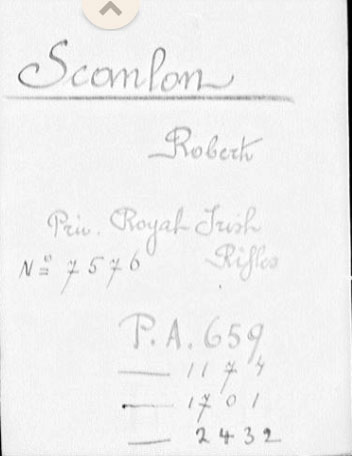 Scanlon
Robert
Priv. Royal Irish
Nº 7576 Rifles
P.A. 659
— 1174
— 1701
— 2432